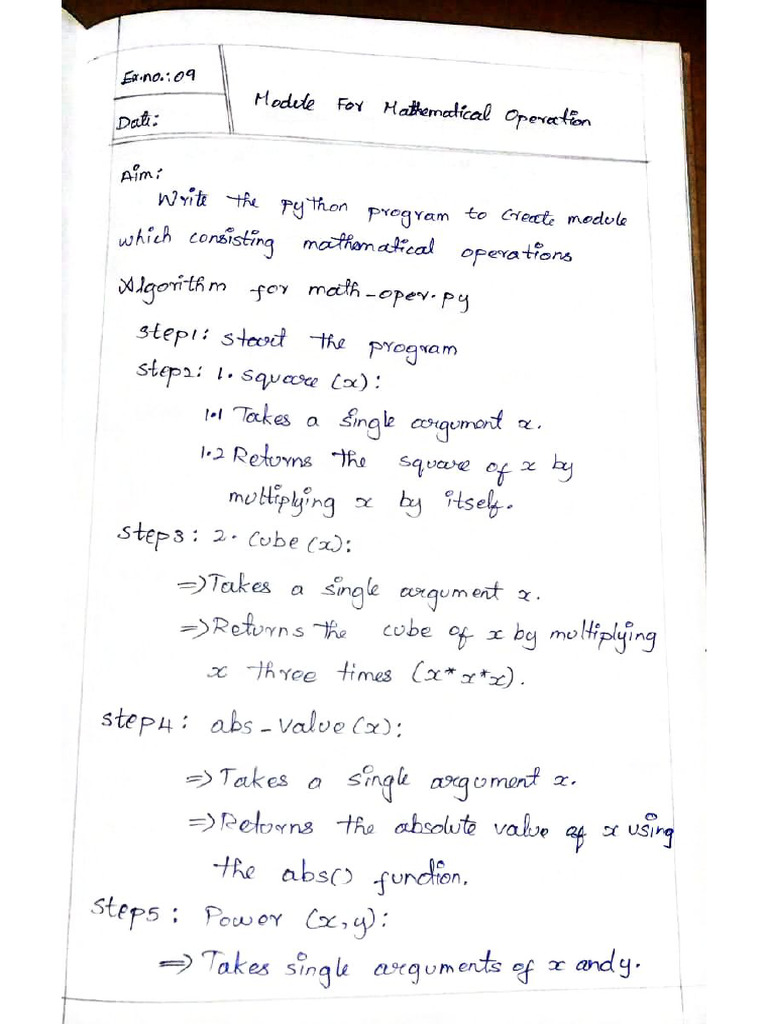 Ex.no.: 09
Module For Mathematical Operation
Date:
Aim:
Write the python program to create module
which consisting mathematical operations
Algorithm for math-oper.py
step1: start the program
step2: 1. square (x):
1.1 Takes a single argument x.
1.2 Returns the square of x by
multiplying x by itself.
step3: 2. Cube (x):
⇒ Takes a single argument x.
⇒ Returns the cube of x by multiplying
x three times (x*x*x).
step4: abs-value (x):
⇒ Takes a single argument x.
⇒ Returns the absolute value of x using
the abs() function.
step5: Power (x,y):
⇒ Takes single arguments of x and y.